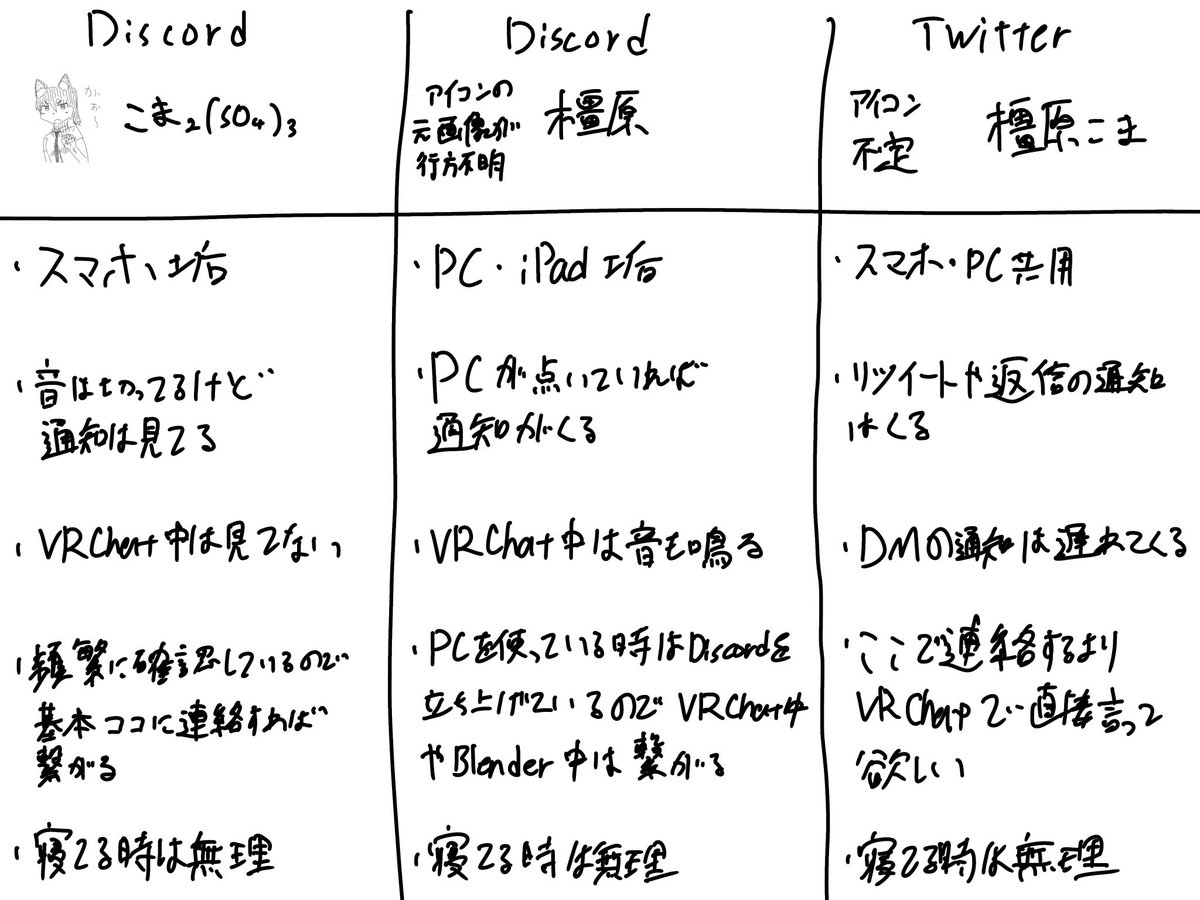 Discord
がお〜
こま₂(SO₄)₃
・スマホ垢
・音は切ってるけど
通知は見てる
・VRChat中は見てない
・頻繁に確認しているので
基本ココに連絡すれば
繋がる
・寝てる時は無理
Discord
アイコンの
元画像が
行方不明
橿原
・PC・iPad垢
・PCが点いていれば
通知がくる
・VRChat中は音も鳴る
・PCを使っている時はDiscordを
立ち上げているのでVRChat中
やBlender中は繋がる
・寝てる時は無理
Twitter
アイコン
不定
橿原こま
・スマホ・PC共用
・リツイートや返信の通知
はくる
・DMの通知は遅れてくる
・ここで連絡するより
VRChatで直接言って
欲しい
・寝てる時は無理